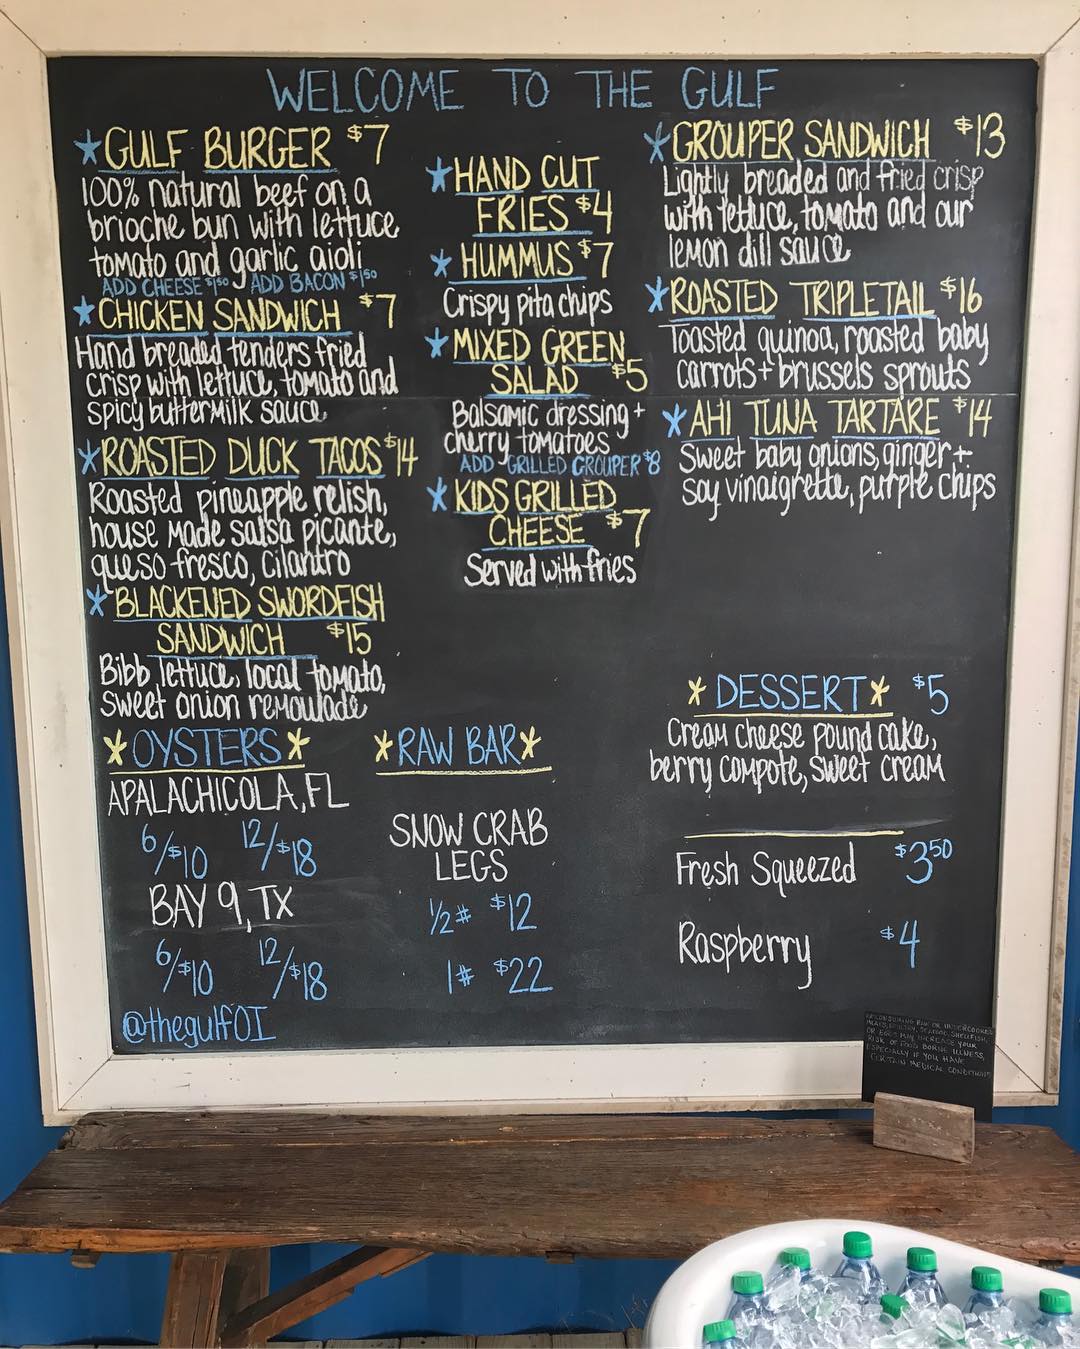 WELCOME TO THE GULF
GULF BURGER $7
100% natural beef on a
brioche bun with lettuce
tomato and garlic aioli
ADD CHEESE $1.50 ADD BACON $1.50
CHICKEN SANDWICH $7
Hand breaded tenders fried
crisp with lettuce, tomato and
spicy buttermilk sauce
ROASTED DUCK TACOS $14
Roasted pineapple relish,
house made salsa picante,
queso fresco, cilantro
BLACKENED SWORDFISH
SANDWICH $15
Bibb lettuce, local tomato,
sweet onion remoulade
HAND CUT
FRIES $4
HUMMUS $7
Crispy pita chips
MIXED GREEN
SALAD $5
Balsamic dressing +
cherry tomatoes
ADD GRILLED GROUPER $8
KIDS GRILLED
CHEESE $7
Served with fries
GROUPER SANDWICH $13
Lightly breaded and fried crisp
with lettuce, tomato and our
lemon dill sauce
ROASTED TRIPLETAIL $16
Toasted quinoa, roasted baby
carrots + brussels sprouts
AHI TUNA TARTARE $14
Sweet baby onions, ginger +
soy vinaigrette, purple chips
OYSTERS
APALACHICOLA, FL
6/$10 12/$18
BAY 9, TX
6/$10 12/$18
@thegulfOI
RAW BAR
SNOW CRAB
LEGS
1/2# $12
1# $22
DESSERT $5
Cream cheese pound cake,
berry compote, sweet cream
Fresh Squeezed $3.50
Raspberry $4
CONSUMING RAW OR UNDERCOOKED
MEATS, POULTRY, SEAFOOD, SHELLFISH,
OR EGGS MAY INCREASE YOUR
RISK OF FOOD BORNE ILLNESS,
ESPECIALLY IF YOU HAVE
CERTAIN MEDICAL CONDITIONS